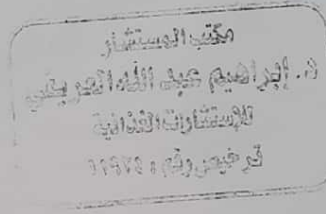 مكتب المستشار
د. إبراهيم عبد الله العريفي
للإستشارات الغذائية
ترخيص رقم : ١١٩٢٥